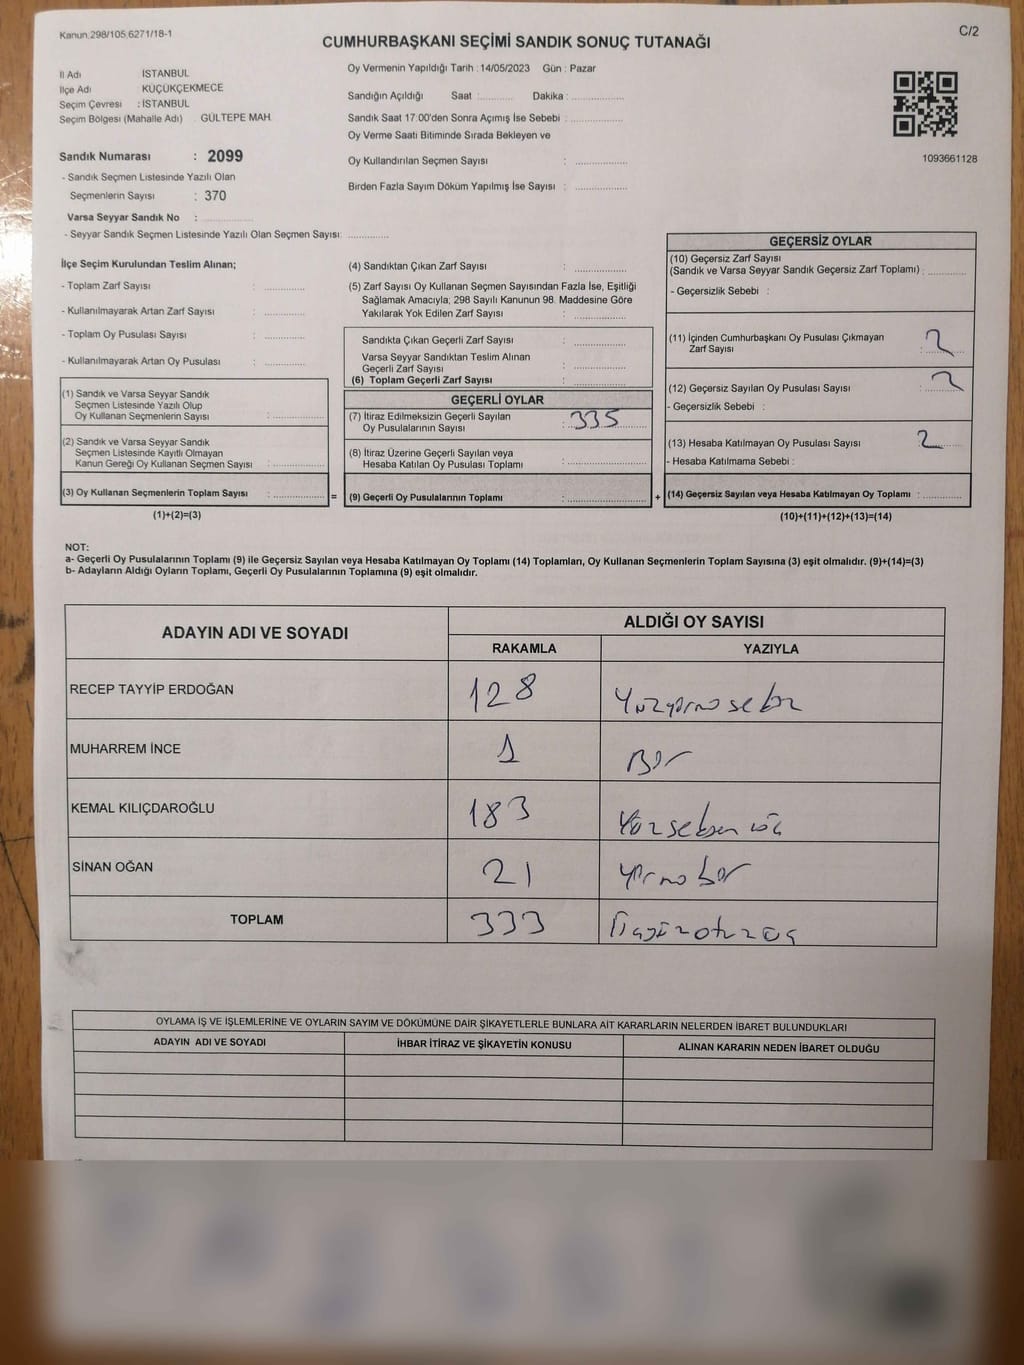 Kanun 298/105,6271/18-1
C/2
CUMHURBAŞKANI SEÇİMİ SANDIK SONUÇ TUTANAĞI
İl Adı İSTANBUL
İlçe Adı KÜÇÜKÇEKMECE
Seçim Çevresi : İSTANBUL
Seçim Bölgesi (Mahalle Adı) GÜLTEPE MAH.
Sandık Numarası : 2099
- Sandık Seçmen Listesinde Yazılı Olan
Seçmenlerin Sayısı : 370
Varsa Seyyar Sandık No :
- Seyyar Sandık Seçmen Listesinde Yazılı Olan Seçmen Sayısı:
Oy Vermenin Yapıldığı Tarih : 14/05/2023 Gün : Pazar
Sandığın Açıldığı Saat : Dakika :
Sandık Saat 17:00'den Sonra Açımış İse Sebebi :
Oy Verme Saati Bitiminde Sırada Bekleyen ve
Oy Kullandırılan Seçmen Sayısı :
Birden Fazla Sayım Döküm Yapılmış İse Sayısı :
1093661128
İlçe Seçim Kurulundan Teslim Alınan;
- Toplam Zarf Sayısı :
- Kullanılmayarak Artan Zarf Sayısı :
- Toplam Oy Pusulası Sayısı :
- Kullanılmayarak Artan Oy Pusulası :
(1) Sandık ve Varsa Seyyar Sandık
Seçmen Listesinde Yazılı Olup
Oy Kullanan Seçmenlerin Sayısı :
(2) Sandık ve Varsa Seyyar Sandık
Seçmen Listesinde Kayıtlı Olmayan
Kanun Gereği Oy Kullanan Seçmen Sayısı :
(3) Oy Kullanan Seçmenlerin Toplam Sayısı :
(1)+(2)=(3)
=
(4) Sandıktan Çıkan Zarf Sayısı :
(5) Zarf Sayısı Oy Kullanan Seçmen Sayısından Fazla İse, Eşitliği
Sağlamak Amacıyla; 298 Sayılı Kanunun 98. Maddesine Göre
Yakılarak Yok Edilen Zarf Sayısı :
Sandıkta Çıkan Geçerli Zarf Sayısı :
Varsa Seyyar Sandıktan Teslim Alınan
Geçerli Zarf Sayısı :
(6) Toplam Geçerli Zarf Sayısı :
GEÇERLİ OYLAR
(7) İtiraz Edilmeksizin Geçerli Sayılan
Oy Pusulalarının Sayısı : 335
(8) İtiraz Üzerine Geçerli Sayılan veya
Hesaba Katılan Oy Pusulası Toplamı :
(9) Geçerli Oy Pusulalarının Toplamı :
+
GEÇERSİZ OYLAR
(10) Geçersiz Zarf Sayısı
(Sandık ve Varsa Seyyar Sandık Geçersiz Zarf Toplamı) :
- Geçersizlik Sebebi :
(11) İçinden Cumhurbaşkanı Oy Pusulası Çıkmayan
Zarf Sayısı : 2
(12) Geçersiz Sayılan Oy Pusulası Sayısı : 2
- Geçersizlik Sebebi :
(13) Hesaba Katılmayan Oy Pusulası Sayısı : 2
- Hesaba Katılmama Sebebi :
(14) Geçersiz Sayılan veya Hesaba Katılmayan Oy Toplamı :
(10)+(11)+(12)+(13)=(14)
NOT:
a- Geçerli Oy Pusulalarının Toplamı (9) ile Geçersiz Sayılan veya Hesaba Katılmayan Oy Toplamı (14) Toplamları, Oy Kullanan Seçmenlerin Toplam Sayısına (3) eşit olmalıdır. (9)+(14)=(3)
b- Adayların Aldığı Oyların Toplamı, Geçerli Oy Pusulalarının Toplamına (9) eşit olmalıdır.
ADAYIN ADI VE SOYADI
ALDIĞI OY SAYISI
RAKAMLA YAZIYLA
RECEP TAYYİP ERDOĞAN 128
MUHARREM İNCE 1 Bir
KEMAL KILIÇDAROĞLU 183 Yüzseksen üç
SİNAN OĞAN 21 Yirmi bir
TOPLAM 333
OYLAMA İŞ VE İŞLEMLERİNE VE OYLARIN SAYIM VE DÖKÜMÜNE DAİR ŞİKAYETLERLE BUNLARA AİT KARARLARIN NELERDEN İBARET BULUNDUKLARI
ADAYIN ADI VE SOYADI İHBAR İTİRAZ VE ŞİKAYETİN KONUSU ALINAN KARARIN NEDEN İBARET OLDUĞU